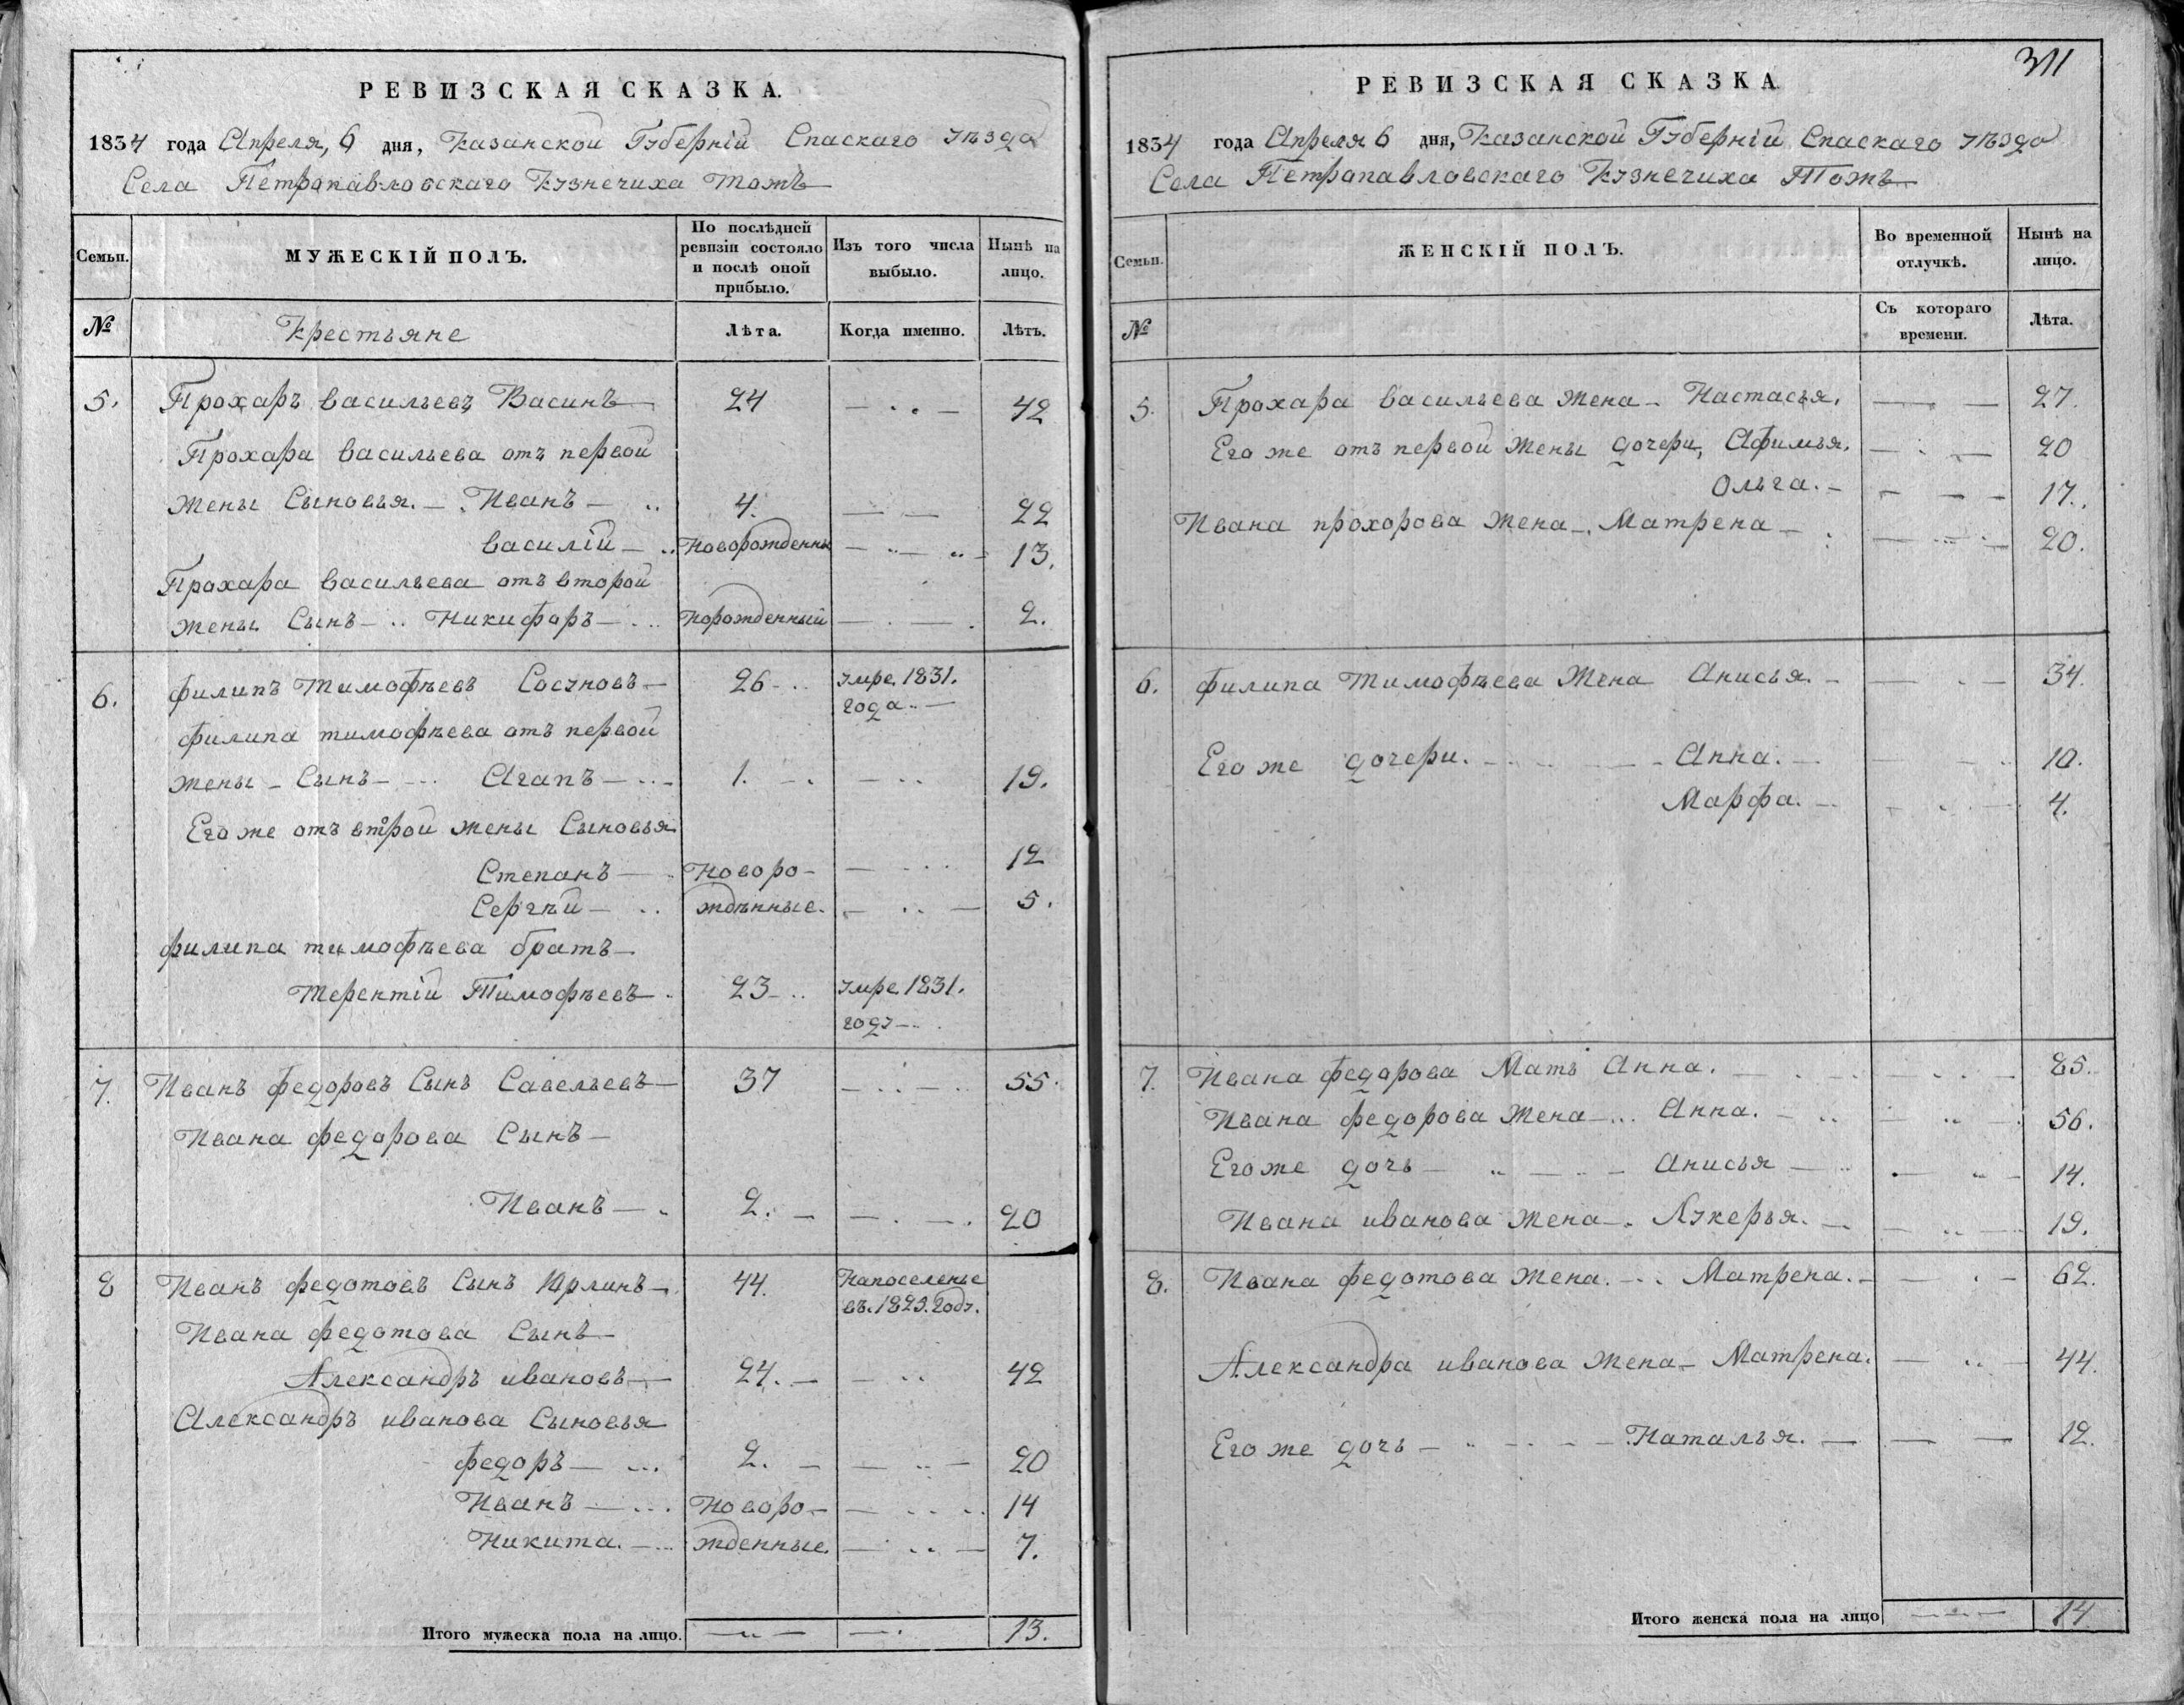 РЕВИЗСКАЯ СКАЗКА.
1834 года Апреля, 6 дня, Казанской Губерніи Спаскаго уѣзда
Села Петропавловскаго Кузнечиха тожъ
Семьи. МУЖЕСКІЙ ПОЛЪ. По послѣдней ревизіи состояло и послѣ оной прибыло. Изъ того числа выбыло. Нынѣ на лицо.
№ Крестьяне Лѣта. Когда именно. Лѣтъ.
5. Прохаръ васильевъ Васинъ 24 42
Прохара васильева отъ первой
жены Сыновья. Иванъ 4. 22
василій Новорожденны 13.
Прохара васильева отъ второй
жены Сынъ Никифаръ Норожденный 2.
6. филипъ Тимофѣевъ Сосуновъ 26 умре 1831.
года
филипа тимофѣева отъ первой
жены Сынъ Агапъ 1. 19.
Его же отъ второй жены Сыновья
Степанъ Новоро- 12
Сергѣй жденные. 5.
филипа тимофѣева братъ
Терентій Тимофѣевъ 23 умре 1831.
году
7. Иванъ федоровъ Сынъ Савельевъ 37 55.
Ивана федорова Сынъ
Иванъ 2. 20
8 Иванъ федотовъ Сынъ Юрлинъ 44. Напоселенье
въ 1829. году.
Ивана федотова Сынъ
Александръ ивановъ 24. 42
Александръ иванова Сыновья
федоръ 2. 20
Иванъ Новоро- 14
Никита. жденные. 7.
Итого мужеска пола на лицо. 13.
311
РЕВИЗСКАЯ СКАЗКА
1834 года Апреля 6 дня, Казанской Губерніи Спаскаго уѣзда
Села Петропавловскаго Кузнечиха Тожъ
Семьи. ЖЕНСКІЙ ПОЛЪ. Во временной отлучкѣ. Нынѣ на лицо.
№ Съ котораго времени. Лѣта.
5. Прохара васильева жена Настасья. 27.
Его же отъ первой жены дочери, Афимья. 20
Ольга. 17.
Ивана прохорова жена Матрена 20.
6. филипа Тимофѣева Жена Анисья. 34.
Его же дочери. Анна. 10.
Марфа. 4.
7. Ивана федорова Мать Анна. 85.
Ивана федорова жена Анна. 56.
Его же дочь Анисья 14.
Ивана иванова жена Лукерья. 19.
8. Ивана федотова жена. Матрена. 62.
Александра иванова жена Матрена. 44.
Его же дочь Наталья. 12.
Итого женска пола на лицо 14